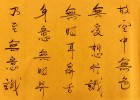 故空中無色
無受想行識
無眼耳鼻舌
身意無
乃至無意識